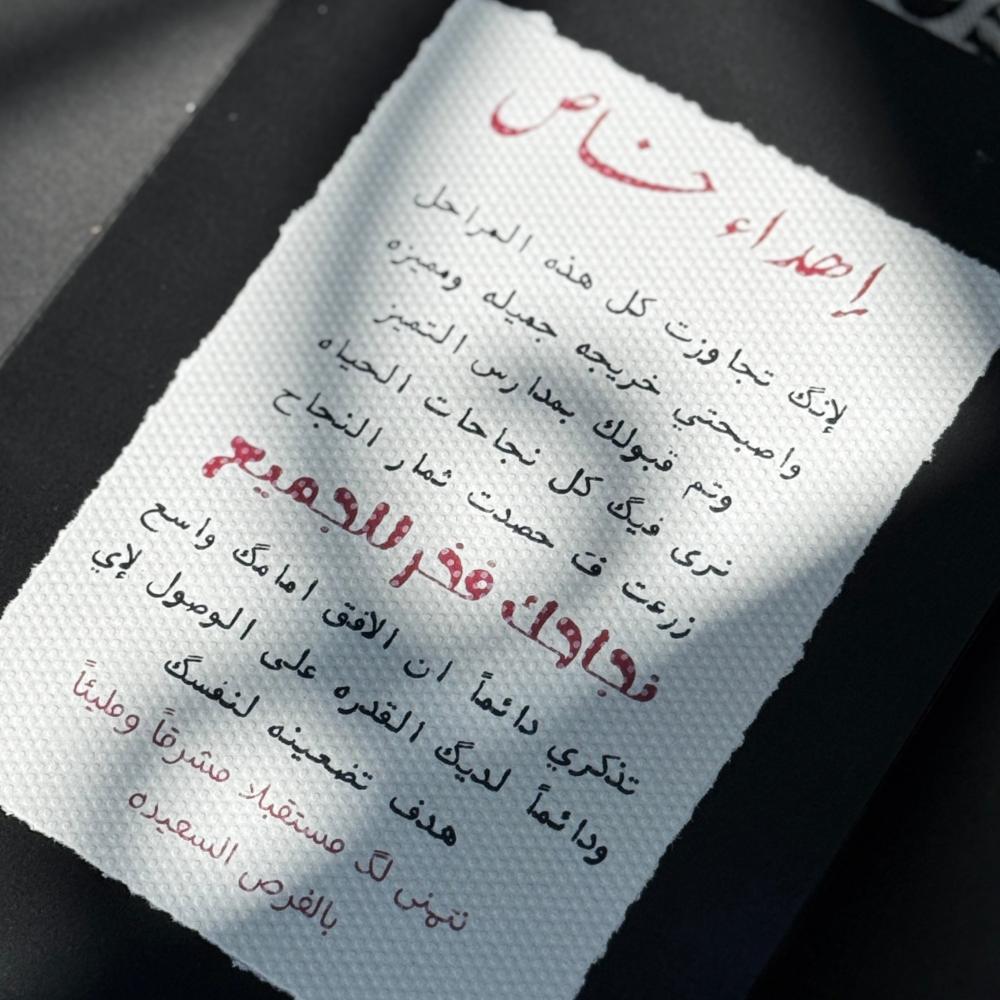 إهداء خاص
لإنگ تجاوزت كل هذه المراحل
واصبحتي خريجه جميله ومميزه
وتم قبولك بمدارس التميز
نرى فيگ كل نجاحات الحياه
زرعت ف حصدت ثمار النجاح
نجاحك فخر للجميع
تذكري دائماً ان الافق امامگ واسع
ودائماً لديگ القدره على الوصول لإي
هدف تضعينه لنفسگ
نتمنى لگ مستقبلا مشرقاً ومليئاً
بالفرص السعيده